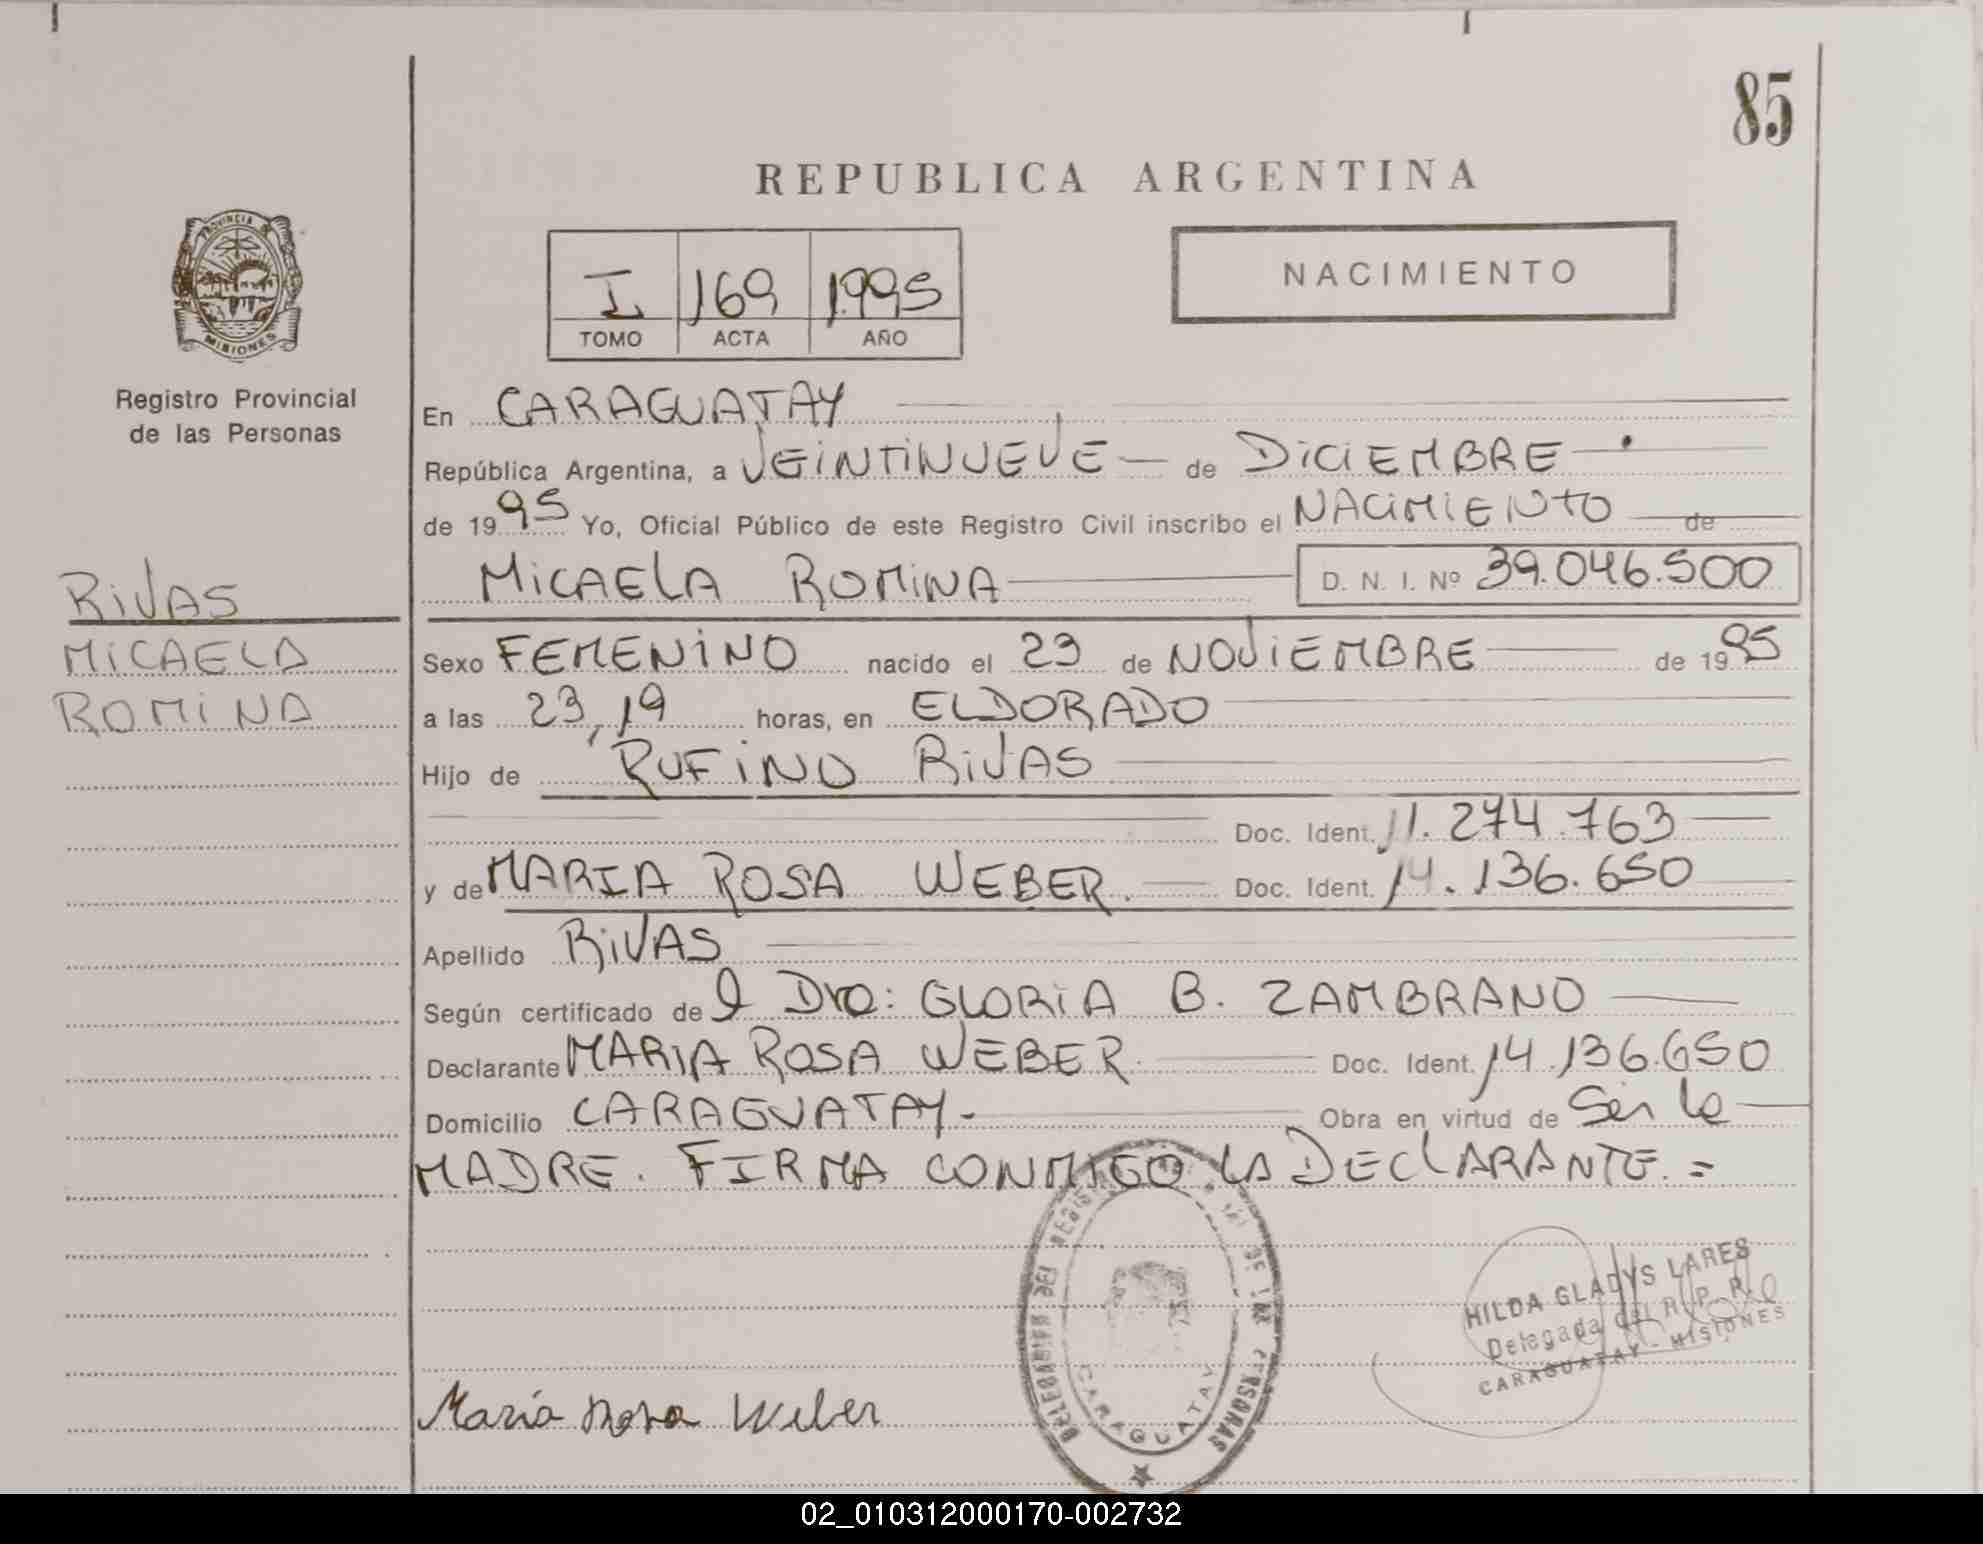 85
REPUBLICA ARGENTINA
PROVINCIA DE
MISIONES
Registro Provincial
de las Personas
I 169 1995
TOMO ACTA AÑO
NACIMIENTO
En CARAGUATAY
República Argentina, a VEINTINUEVE de DICIEMBRE
de 1995 Yo, Oficial Público de este Registro Civil inscribo el NACIMIENTO de
MICAELA ROMINA D. N. I. Nº 39.046.500
RIVAS
MICAELA
ROMINA
Sexo FEMENINO nacido el 23 de NOVIEMBRE de 1995
a las 23,19 horas, en ELDORADO
Hijo de RUFINO RIVAS
Doc. Ident. 11.274.763
y de MARIA ROSA WEBER. Doc. Ident. 14.136.650
Apellido RIVAS
Según certificado de l Dra: GLORIA B. ZAMBRANO
Declarante MARIA ROSA WEBER. Doc. Ident. 14.136.650
Domicilio CARAGUATAY.- Obra en virtud de Ser la
MADRE. FIRMA CONMIGO LA DECLARANTE.=
DELEGACION DEL REGISTRO DE LAS PERSONAS
CARAGUATAY
HILDA GLADYS LARES
Delegada del R. P. P.
CARAGUATAY - MISIONES
Maria Rosa Weber
02_010312000170-002732